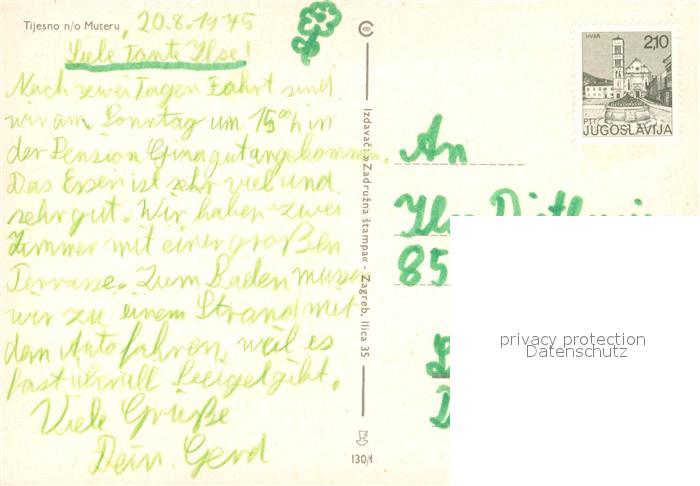 Tijesno n/o Muteru, 20.8.1975
Liebe Tante Ilse!
Nach zwei Tagen Fahrt sind
wir am Sonntag um 15⁰⁰h in
der Pension Gina gut angekomm.
Das Essen ist sehr viel und
sehr gut. Wir haben zwei
Zimmer mit einer großen
Terrasse. Zum Baden müssen
wir zu einem Strand mit
dem Auto fahren, weil es
fast überall Seeigel gibt.
Viele Grüße
Dein Gerd
Izdavač: »Zadružna štampa« - Zagreb, Ilica 35
130/1
HVAR
2,10
PTT
JUGOSLAVIJA
An
Ilse
85
privacy protection
Datenschutz